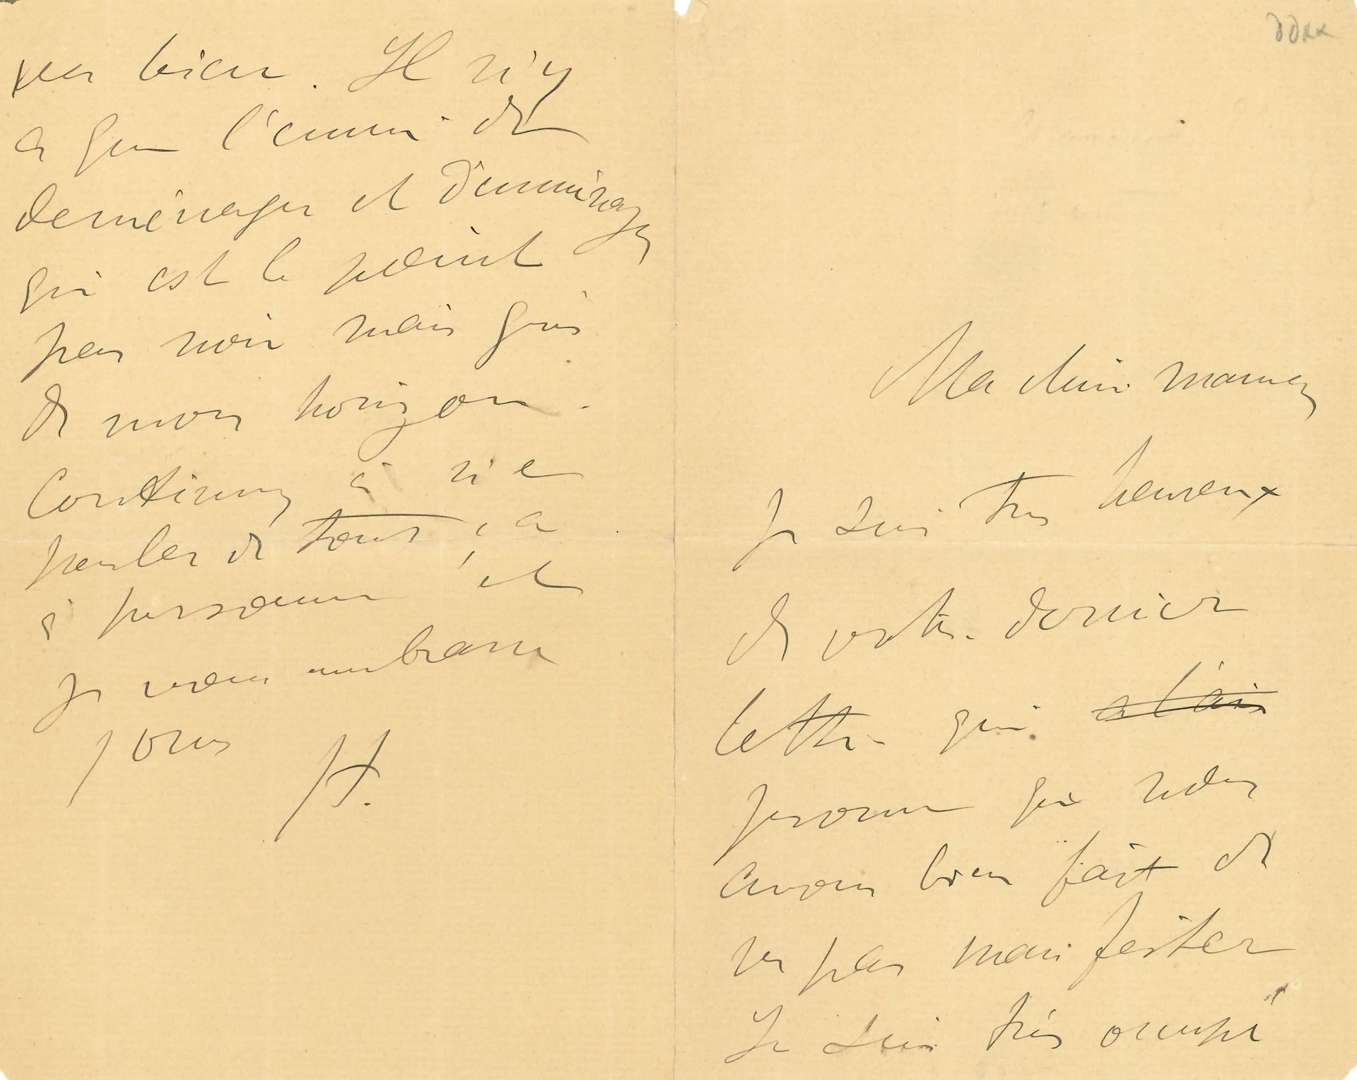 Ma chère maman
Je suis très heureux
de votre dernière
lettre qui
prouve que nous
avons bien fait de
ne pas manifester
Je suis très occupé
pas bien. Il n'y
a que l'ennui de
deménager et d'emménager
qui est le point
pas noir mais gris
de mon horizon.
Continuez à ne
parler de tout ça
à personne et
je vous embrasse
yours H.